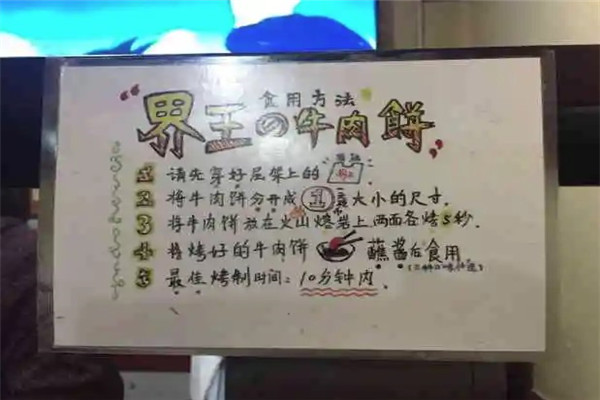 食用方法
“界王の牛肉餅”
1 请先穿好层架上的“围兜”:
2 将牛肉饼分开成①元大小的尺寸.
3 将牛肉饼放在火山熔岩上两面各烤5秒.
4 将烤好的牛肉饼 蘸酱后食用
5 最佳烤制时间:10分钟内